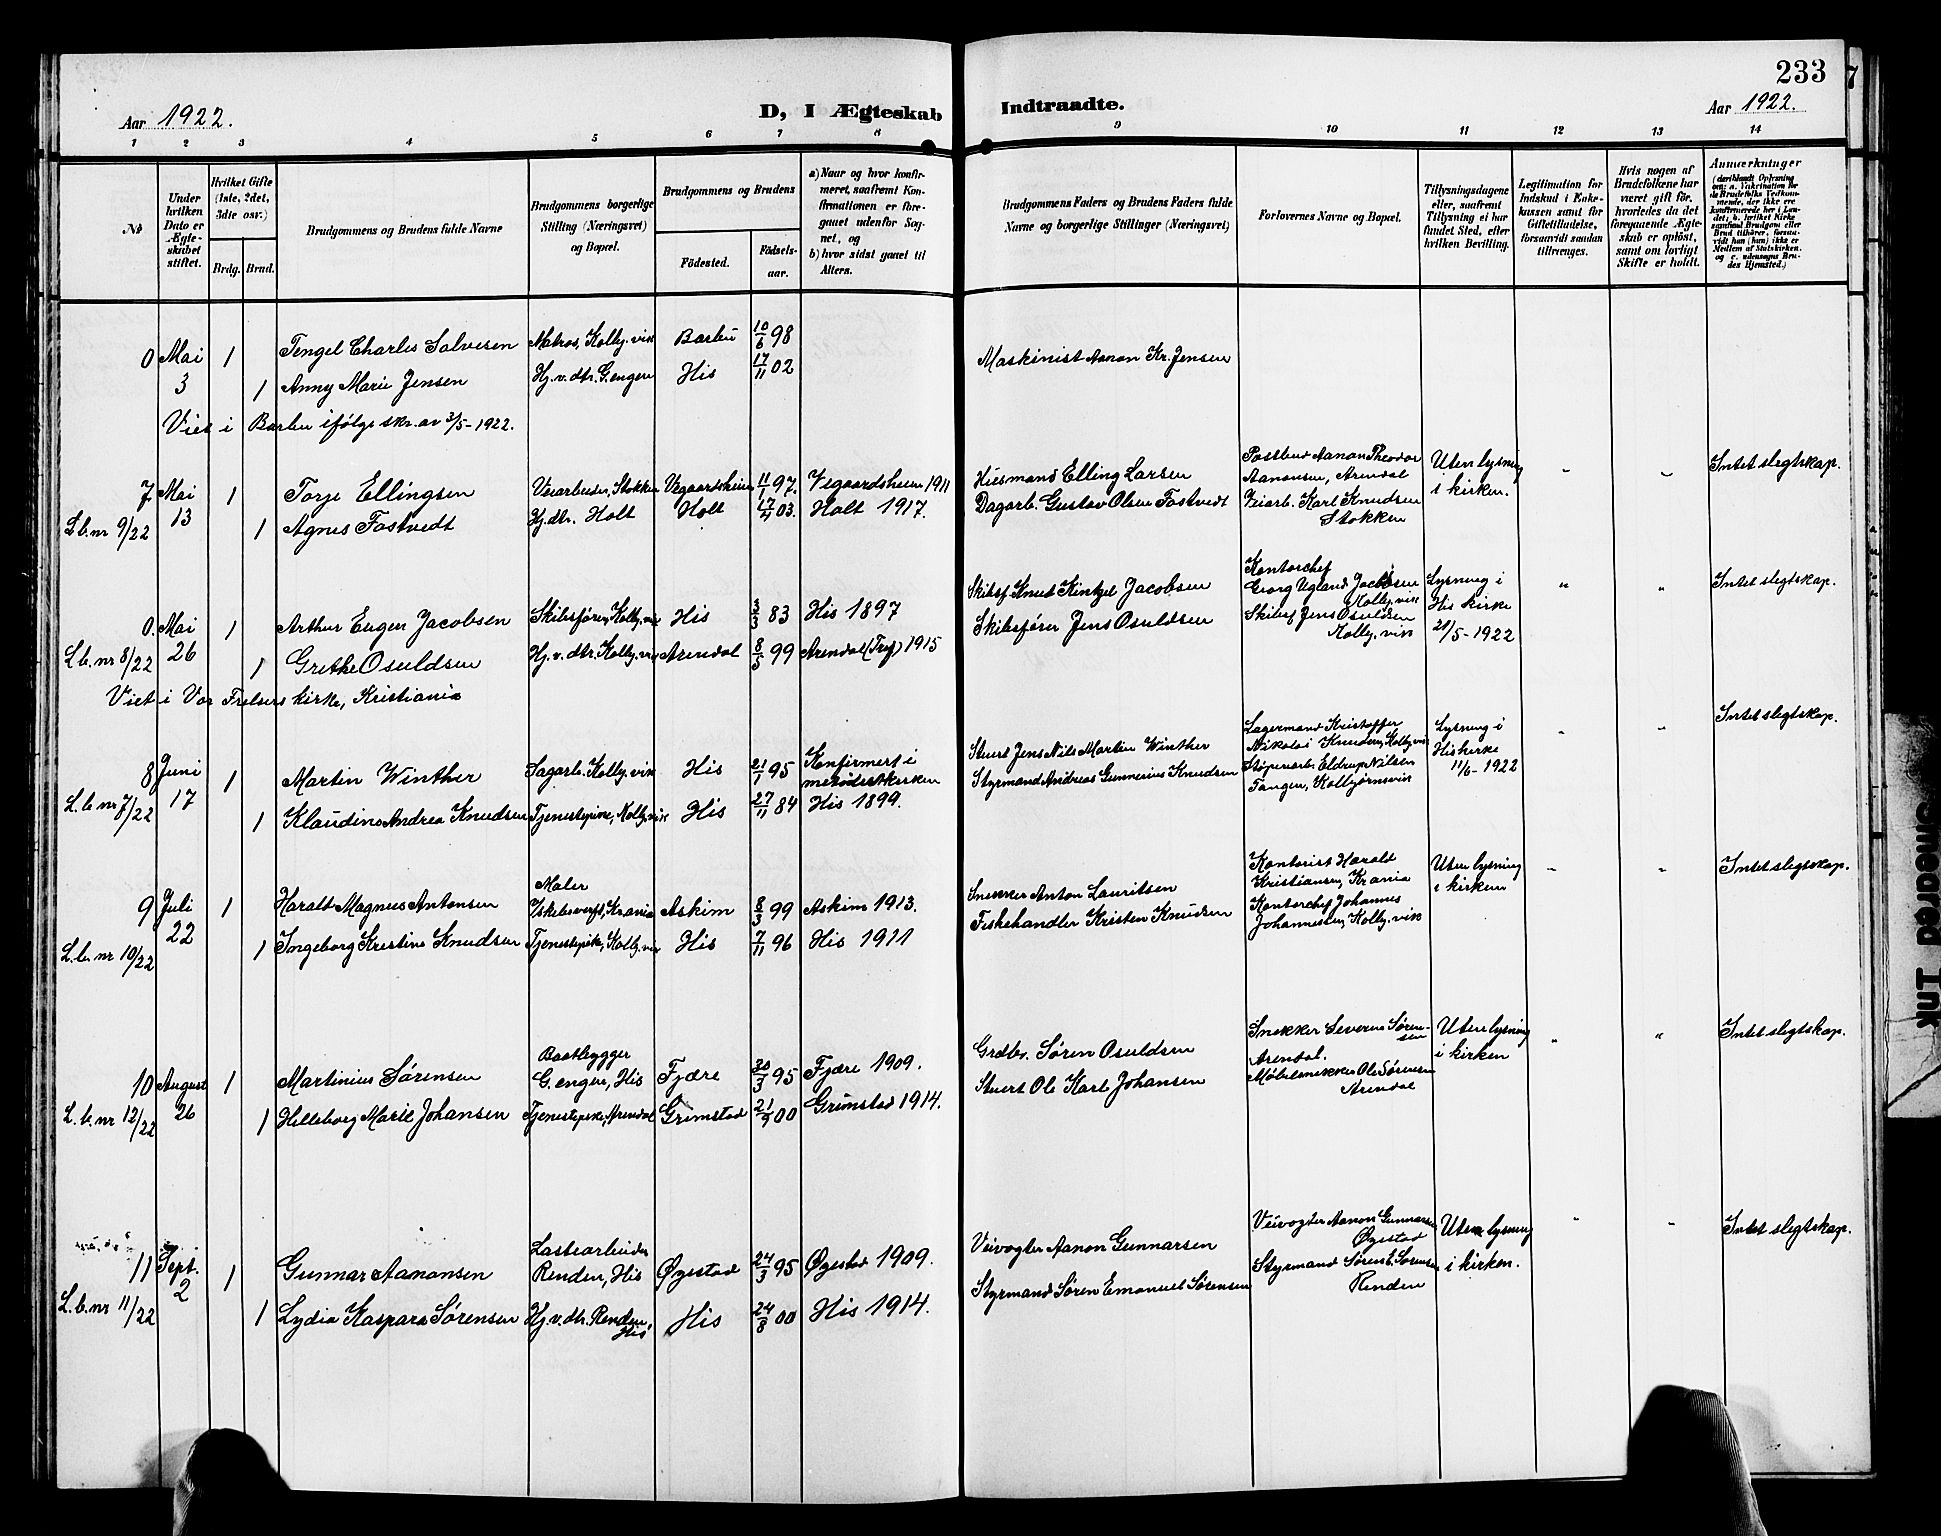 233
Aar 1922.
D, I Ægteskab
Indtraadte.
Aar 1922.
1 2 3 4 5 6 7 8 9 10 11 12 13 14
No
Under hvilken Dato er Ægteskabet stiftet.
Hvilket Gifte (1ste, 2det, 3die osv.)
Brdg. Brud.
Brudgommens og Brudens fulde Navne
Brudgommens borgerlige Stilling (Næringsvei) og Bopæl.
Brudgommens og Brudens
Födested. Födselsaar.
a) Naar og hvor konfirmeret, saafremt Konfirmationen er foregaaet udenfor Sognet, og
b) hvor sidst gaaet til Alters.
Brudgommens Faders og Brudens Faders fulde Navne og borgerlige Stillinger (Næringsvei)
Forlovernes Navne og Bopæl.
Tillysningsdagene eller, saafremt Tillysning ei har fundet Sted, efter hvilken Bevilling.
Legitimation for Indskud i Enkekassen samt for Giftetilladelse, forsaavidt saadan tiltrænges.
Hvis nogen af Brudefolkene har været gift för, hvorledes da det foregaaende Ægteskab er oplöst, samt om lovligt Skifte er holdt.
Anmærkninger
(deriblandt Oplysning om: a. Vakcination for de Brudefolks Vedkommende, der ikke ere konfirmerede her i Landet; b. hvilket Kirkesamfund Brudgom eller Brud tilhörer, forsaavidt han (hun) ikke er Medlem af Statskirken, og c. udensogns Brudes Hjemsted.)
0 Mai 1 Tengel Charles Salvesen Matros, Kolbj.vik Barbu 10/6 98
3 1 Anny Marie Jensen Hj.v.dtr. G.engen His 17/11 02 Maskinist Aanon Kr. Jensen
Viet i Barbu ifølge skr. av 3/5-1922.
7 Mai 1 Torje Ellingsen Veiarbeider, Stokken Vegaardsheien 11/1 97. Vegaardsheien 1911 Husmand Elling Larsen Postbud Aanon Theodor Aanonsen, Arendal Uten lysning i kirken. " " Intet slegtskap.
L.b.nr 9/22 13 1 Agnes Fostvedt Hj.dtr. Holt Holt 17/11 03. Holt 1917. Dagarb. Gustav Olsen Fostvedt Veiarb. Karl Knudsen Stokken
0. Mai 1 Arthur Eugen Jacobsen Skibsfører, Kolbj.vik His 3/3 83 His 1897 Skibsf. Knud Kintzel Jacobsen Kontorchef Georg Ugland Jacobsen Kolbj.vik Lysning i His kirke 21/5-1922 " " Intet slegtskap.
L.b.nr 8/22 26 1 Grethe Osuldsen Hj.v.dtr. Kolbj.vik Arendal 8/5 99 Arendal (Tref.) 1915 Skibsfører Jens Osuldsen Skibsf. Jens Osuldsen Kolbj.vik
Viet i Vor Frelsers kirke, Kristiania
8 Juni 1 Martin Winther Sagarb. Kolbj.vik His 21/1 95 Konfirmert i metodistkirken Stuert Jens Nils Martin Winther Lagermand Kristoffer Nikolai Knudsen, Kolbj.vik Lysning i His kirke 11/6-1922 " " Intet slegtskap.
L.b.nr 7/22 17 1 Klaudine Andrea Knudsen Tjenestepike, Kolbj.vik His 27/11 84 His 1899. Styrmand Andreas Gunnerius Knudsen Støperiarb. Eldrup Nilsen Tangen, Kolbjørnsvik
9 Juli 1 Harald Magnus Antonsen Maler V.skibsverft, Krania Askim 8/3 99 Askim 1913. Snekker Anton Lauritsen Kontorist Harald Kristiansen, Krania Uten lysning i kirken " " Intet slegtskap.
L.b.nr 10/22 22 1 Ingeborg Kristine Knudsen Tjenestepike, Kolbj.vik His 7/11 96 His 1911 Fiskehandler Kristen Knudsen Kontorchef Johannes Johannessen, Kolbj.vik
10 August 1 Martinius Sørensen Baatbygger G.engen, His Fjære 30/3 95 Fjære 1909. Grdbr. Søren Osuldsen Snekker Severin Sørensen Arendal. Uten lysning i kirken " " Intet slegtskap.
L.b.nr 12/22 26 1 Helleborg Marie Johansen Tjenestepike, Arendal Grimstad 21/9 00 Grimstad 1914. Stuert Ole Karl Johansen Møbelsnekker Ole Sørensen Arendal
11 Sept. 1 Gunnar Aanonsen Lastearbeider Renden, His Øyestad 24/3 95 Øyestad 1909. Veivogter Aanon Gunnarsen Veivogter Aanon Gunnarsen Øyestad Uten lysning i kirken. " " Intet slegtskap.
L.b.nr 11/22 2 1 Lydia Kaspara Sørensen Hj.v.dtr. Renden, His His 24/8 00 His 1914. Styrmand Søren Emanuel Sørensen Styrmand Søren E. Sørensen Renden
Smeared Ink